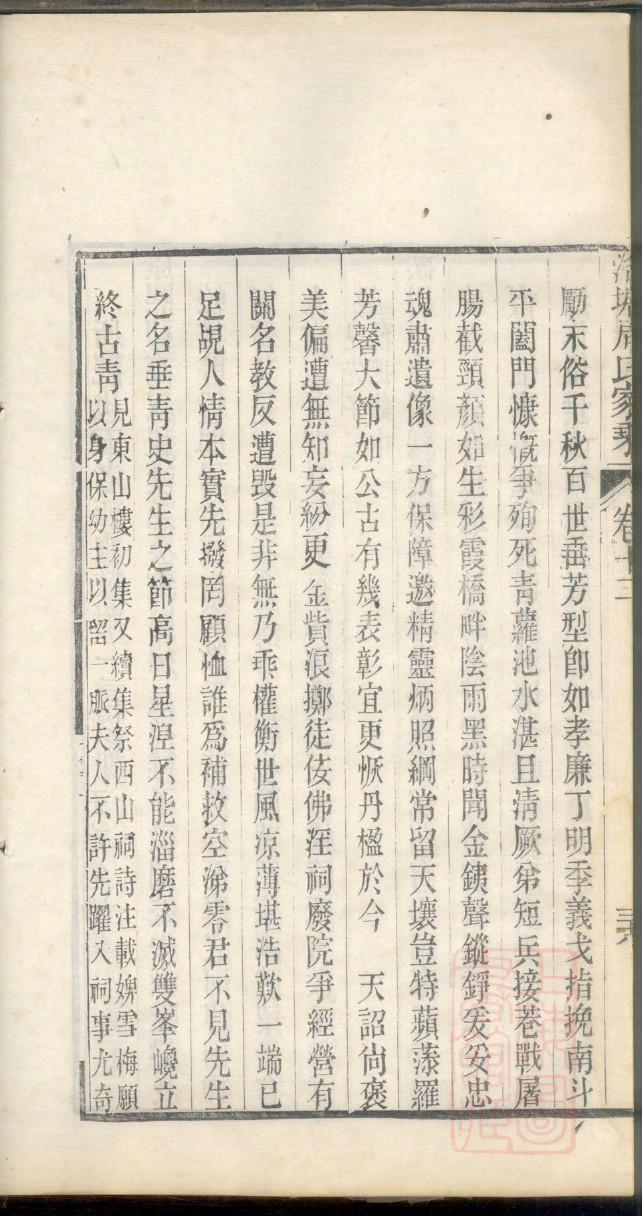 周氏家乘 卷十二
勵末俗千秋百世垂芳型卽如孝廉丁明季義戈指挽南斗
平闔門慷慨爭殉死靑蘿池水湛且淸厥弟短兵接巷戰屠
腸截頸顏如生彩霞橋畔陰雨黑時聞金鐵聲鏦錚爰妥忠
魂肅遺像一方保障邀精靈炳照綱常留天壤豈特蘋藻羅
芳馨大節如公古有幾表彰宜更恢丹楹於今 天詔尙褒
美偏遭無知妄紛更金貲浪擲徒佞佛淫祠廢院爭經營有
關名敎反遭毀是非無乃乖權衡世風凉薄堪浩歎一端已
足覘人情本實先撥罔顧恤誰爲補救空涕零君不見先生
之名垂靑史先生之節高日星湼不能淄磨不滅雙峯巉立
終古靑
見東山樓初集又續集祭西山祠詩注載婢雪梅願
以身保幼主以留一脈夫人不許先躍入祠事尤奇